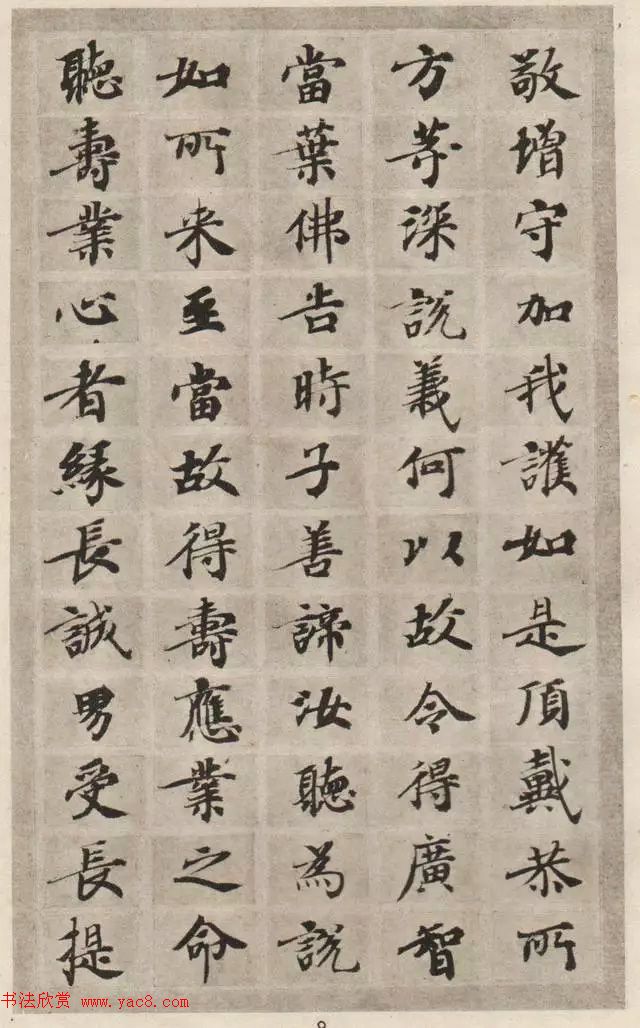 敬增守加我護如是頂戴恭所
方等深說義何以故令得廣智
當葉佛告時子善諦汝聽為說
如所来至當故得壽應業之命
聽壽業心者緣長誠男受長提
书法欣赏 www.yac8.com
9